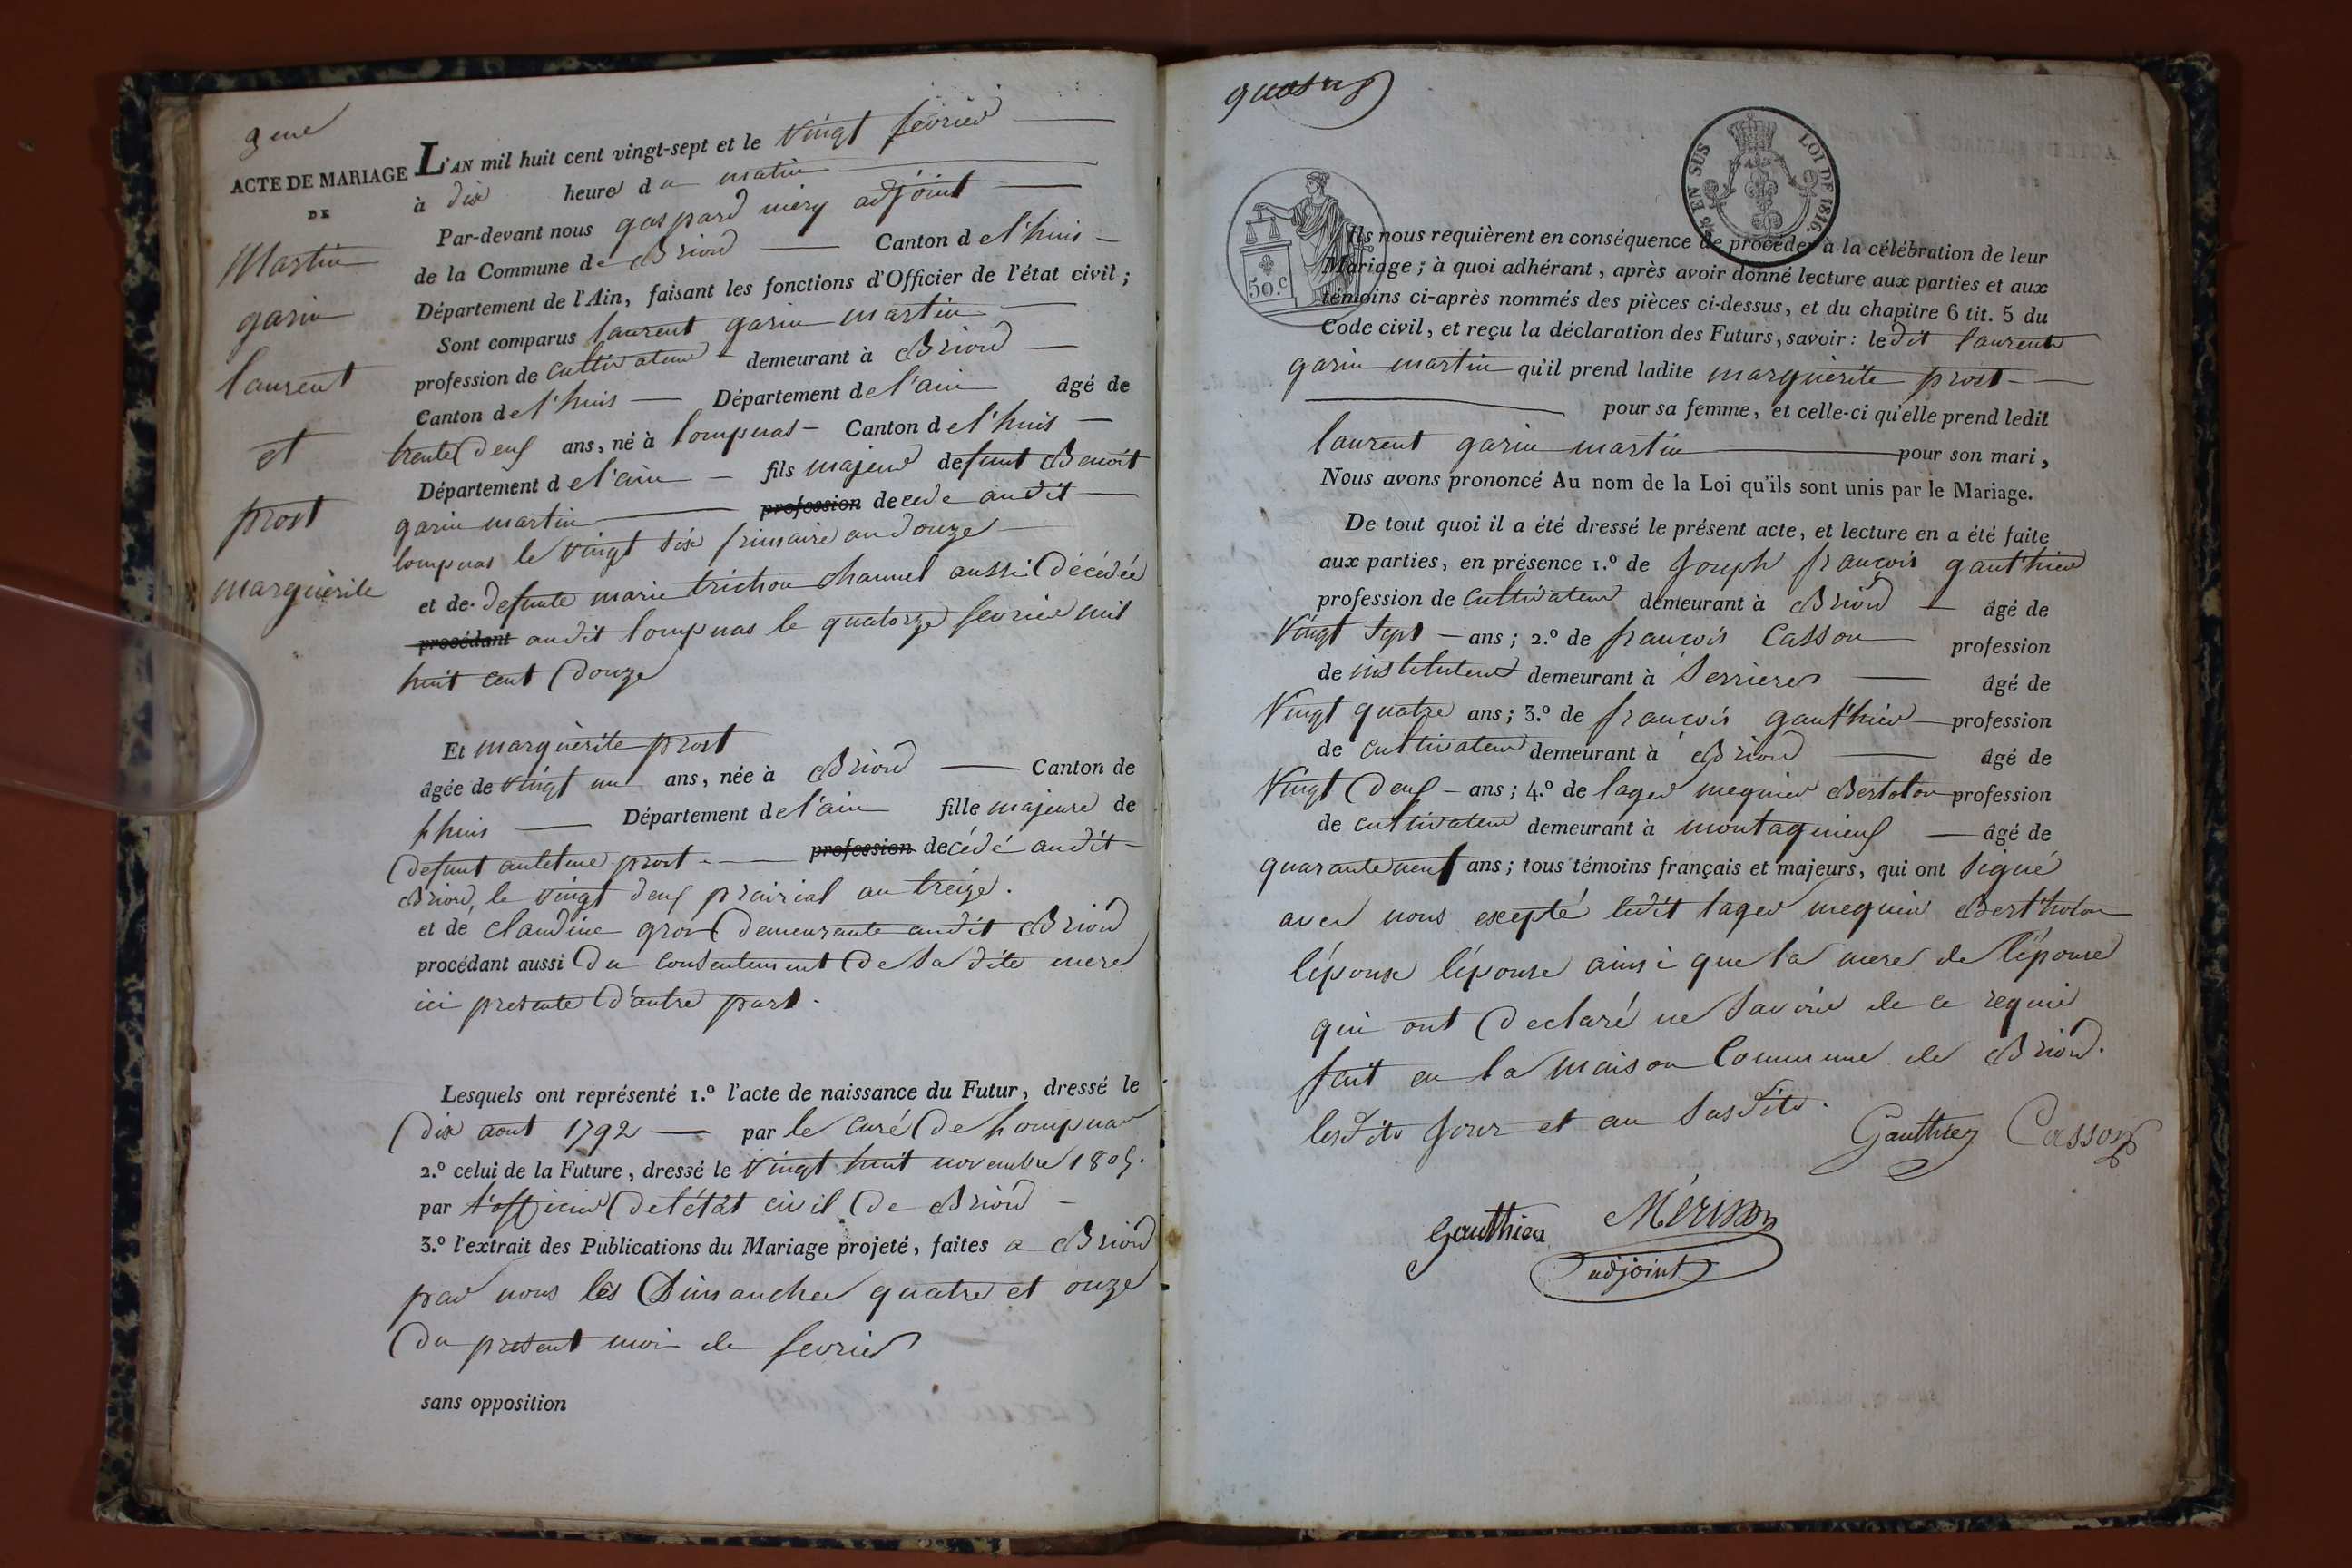 9eme
ACTE DE MARIAGE
DE
Martin
garin
laurent
et
prost
marguèrite
L'AN mil huit cent vingt-sept et le vingt fevrier
à dix heure du matin
Par-devant nous gaspard mèry adjoint
de la Commune de Briord Canton de l'huis
Département de l'Ain, faisant les fonctions d'Officier de l'état civil;
Sont comparus laurent garin martin
profession de cultivateur demeurant à Briord
Canton de l'huis Département de l'ain âgé de
trente deux ans, né à lompnas Canton de l'huis
Département de l'ain fils majeur defunt Benoît
garin martin profession decede audit
lompnas le vingt six frimaire an douze
et de defunte marie trichon channel aussi décédée
procédant audit lompnas le quatorze fevrier mil
huit cent douze
Et marguèrite prost
âgée de vingt un ans, née à Briord Canton de
lhuis Département de l'ain fille majeure de
defunt antelme prost profession decédé audit
Briord, le vingt deux prairial an treize.
et de claudine gros demeurante audit Briord
procédant aussi du consentement de sa dite mere
ici presente d'autre part.
Lesquels ont représenté 1.º l'acte de naissance du Futur, dressé le
dix aout 1792 par le curé de lompnas
2.º celui de la Future, dressé le vingt huit novembre 1805.
par l'officier de l'état civil de Briord
3.º l'extrait des Publications du Mariage projeté, faites a Briord
par nous les Dimanches quatre et onze
du present moi de fevrier
sans opposition
EN SUS
LOI DE 1816.
50.c
Ils nous requièrent en conséquence de procéder à la célébration de leur
Mariage; à quoi adhérant, après avoir donné lecture aux parties et aux
témoins ci-après nommés des pièces ci-dessus, et du chapitre 6 tit. 5 du
Code civil, et reçu la déclaration des Futurs, savoir: ledit laurent
garin martin qu'il prend ladite marguèrite prost
pour sa femme, et celle-ci qu'elle prend ledit
laurent garin martin pour son mari,
Nous avons prononcé Au nom de la Loi qu'ils sont unis par le Mariage.
De tout quoi il a été dressé le présent acte, et lecture en a été faite
aux parties, en présence 1.º de Joseph françois gauthier
profession de cultivateur demeurant à Briord âgé de
vingt sept ans; 2.º de françois Casson profession
de instituteur demeurant à Serrieres âgé de
vingt quatre ans; 3.º de françois gauthier profession
de cultivateur demeurant à Briord âgé de
vingt deux ans; 4.º de lager megnier Bertolon profession
de cultivateur demeurant à montagnieux âgé de
quarante neuf ans; tous témoins français et majeurs, qui ont signé
avec nous excepté ledit lager Bertholon
l'époux l'épouse ainsi que la mere de l'épouse
qui ont declaré ne savoir de ce requis
fait en la maison Commune de Briord.
lesdits jour et an susdits.
Gauthier Casson
Gauthier
adjoint